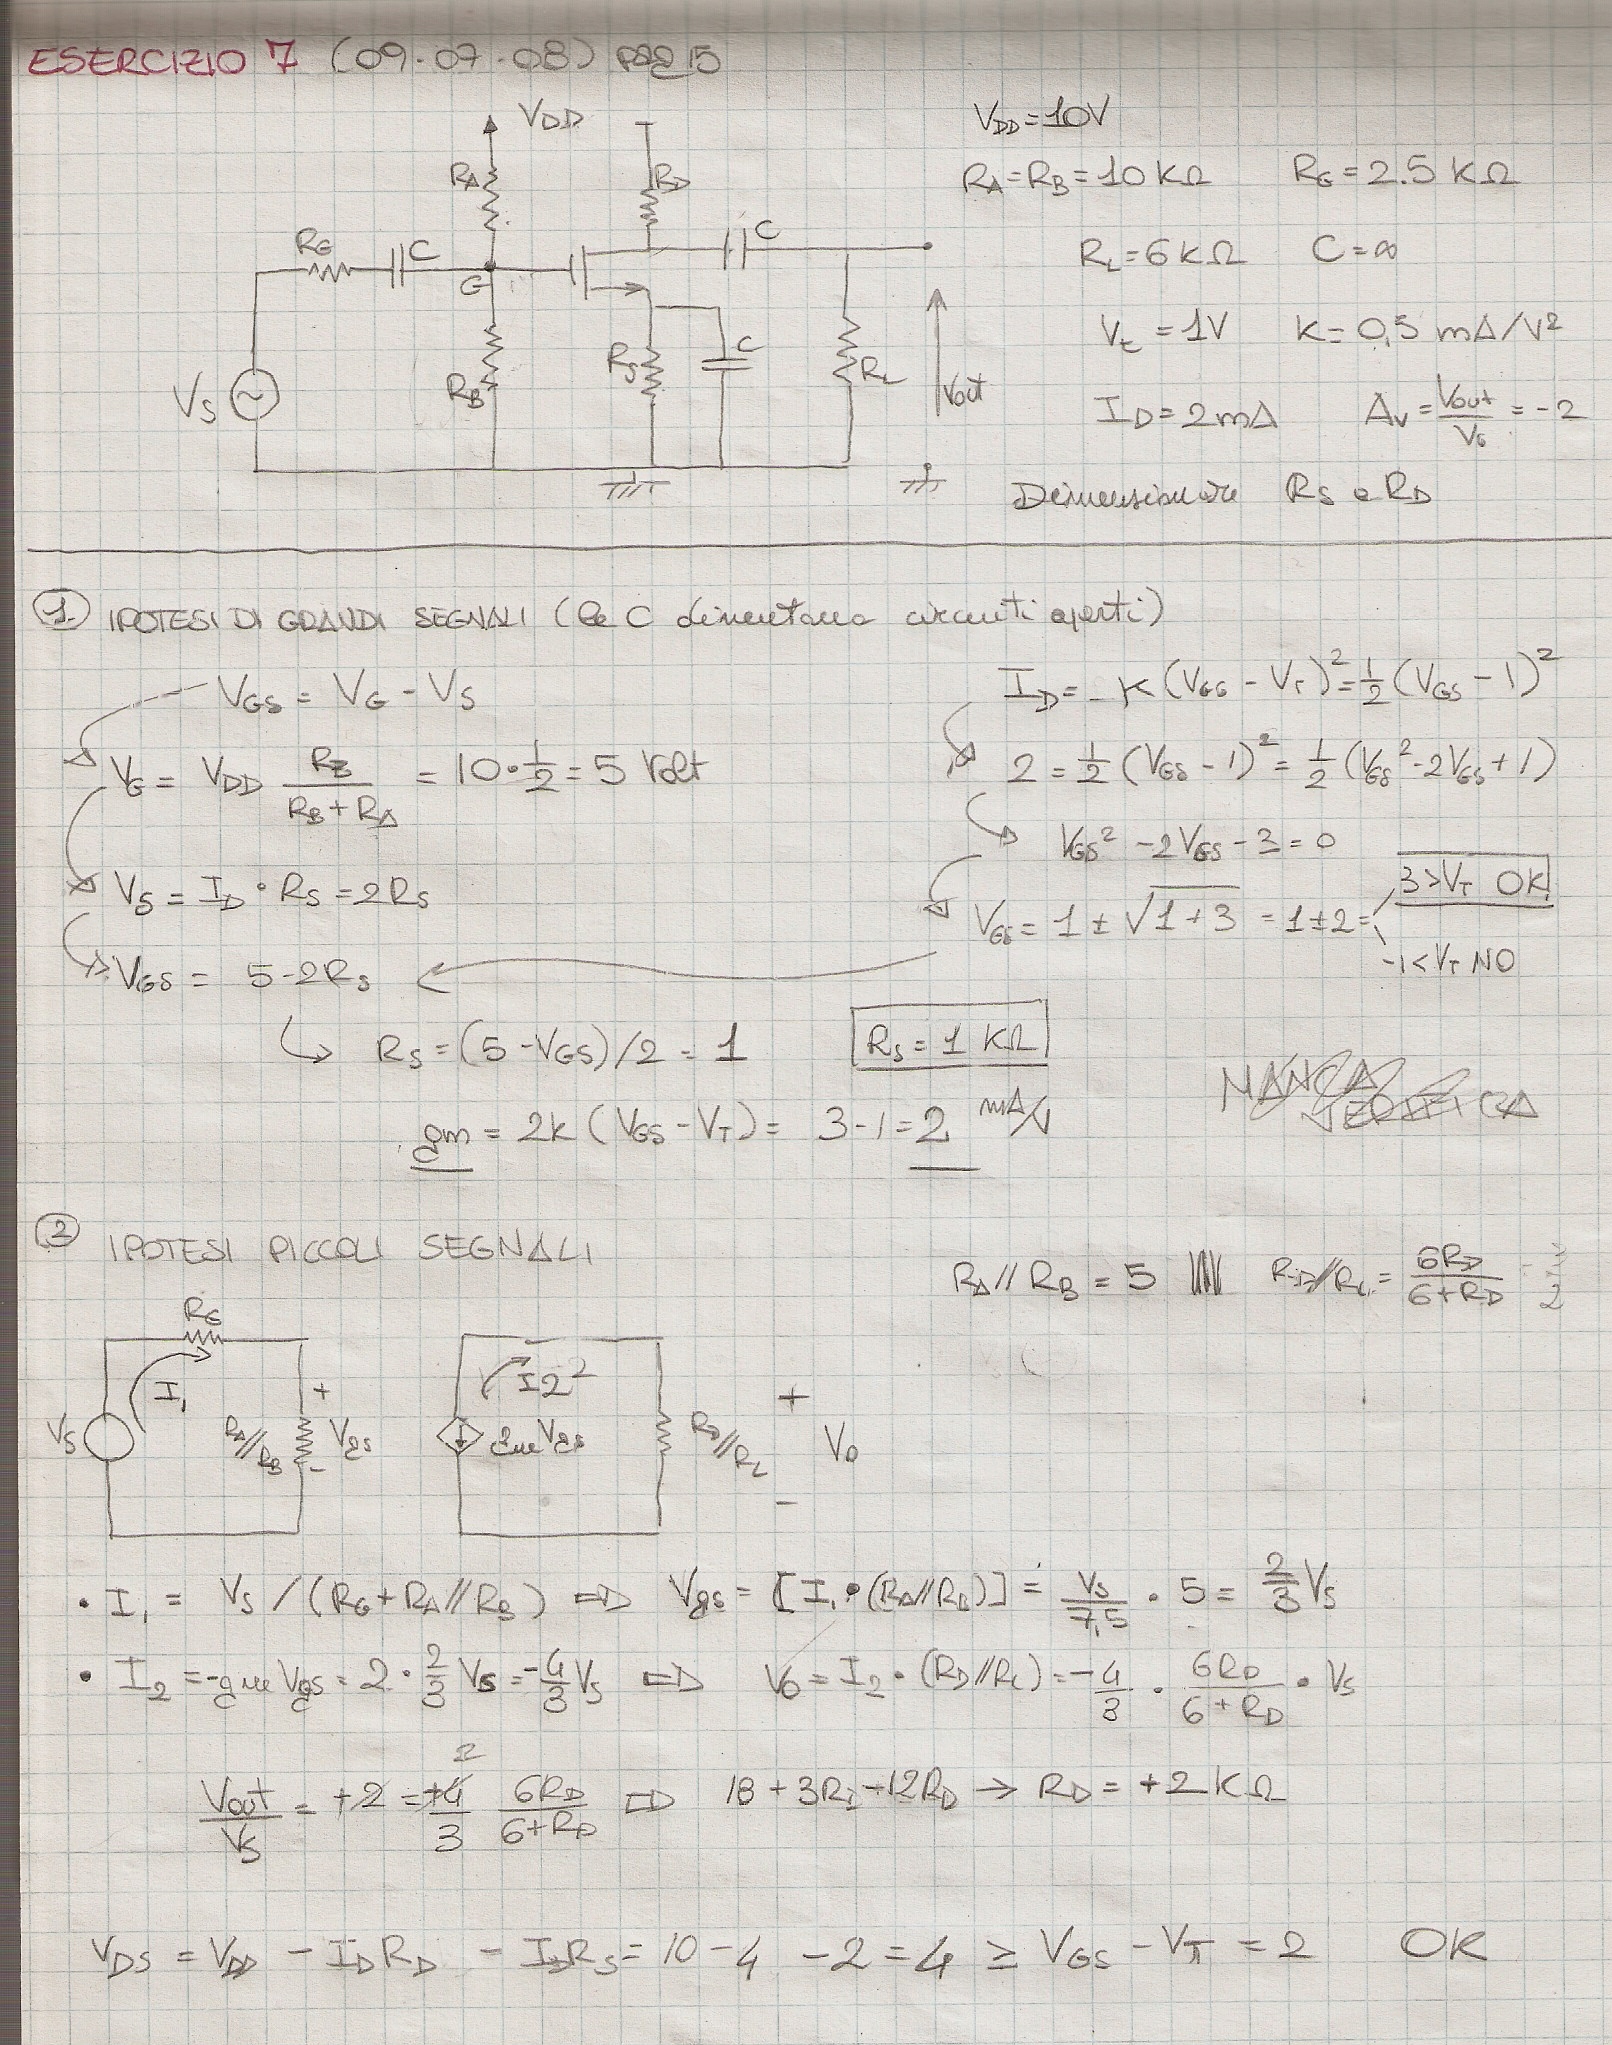 ESERCIZIO 7 (09.07.08) pag 15
VDD
RA
RD
RG
C
C
G
VS
RB
RS
C
RL
Vout
VDD = 10V
RA = RB = 10 KΩ RG = 2.5 KΩ
RL = 6 KΩ C = ∞
Vt = 1V K = 0,5 mA/V²
ID = 2mA AV = Vout/VS = -2
Dimensionare RS e RD
1. IPOTESI DI GRANDI SEGNALI (le C diventano circuiti aperti)
VGS = VG - VS
VG = VDD RB/(RB + RA) = 10 · 1/2 = 5 Volt
VS = ID · RS = 2RS
VGS = 5 - 2RS
ID = K (VGS - VT)² = 1/2 (VGS - 1)²
2 = 1/2 (VGS - 1)² = 1/2 (VGS² - 2VGS + 1)
VGS² - 2VGS - 3 = 0
VGS = 1 ± √1+3 = 1 ± 2 =
3 > VT OK
-1 < VT NO
RS = (5 - VGS)/2 = 1 RS = 1 KΩ
gm = 2K (VGS - VT) = 3 - 1 = 2 mA/V
MANCA
2 IPOTESI PICCOLI SEGNALI
RA // RB = 5 RD//RL = 6RD/(6+RD)
RG
I1
VS
RA//RB
+
Vgs
-
I2
gm Vgs
RD//RL
+
Vo
-
· I1 = VS / (RG + RA // RB) ⇒ Vgs = [I1 · (RA//RB)] = VS/7,5 · 5 = 2/3 VS
· I2 = -gm Vgs = 2 · 2/3 VS = -4/3 VS ⇒ Vo = I2 · (RD//RL) = -4/3 · 6RD/(6 + RD) · VS
Vout/VS = +2 = +4/3 6RD/(6+RD) ⇒ 18 + 3RD - 12RD → RD = +2 KΩ
2
VDS = VDD - IDRD - IDRS = 10 - 4 - 2 = 4 ≥ VGS - VT = 2 OK